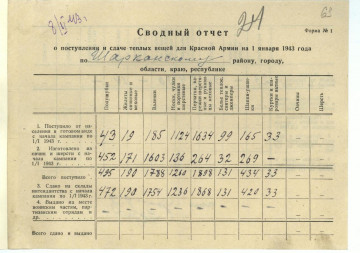 63
24
Форма № 1
Сводный отчет
о поступлении и сдаче теплых вещей для Красной Армии на 1 января 1943 года
по Шарканскому району, городу,
области, краю, республике
Полушубки
Валенки
Овчины
Шерсть
1. Поступило от населения в готовом виде с начала кампании по 1/I 1943 г. 43 19 185 1124 1634 99 165 33
2. Изготовлено из овчин и шерсти с начала кампании по 1/I 1943 г. 452 171 1603 136 264 32 269 -
Всего поступило 495 190 1788 1260 1898 131 434 33
3. Сдано на склады интендантства с начала кампании по 1/I 1943 г. 472 190 1754 1236 1868 131 420 33
4. Выдано на месте воинским частям, партизанским отрядам и др.
Всего сдано и выдано